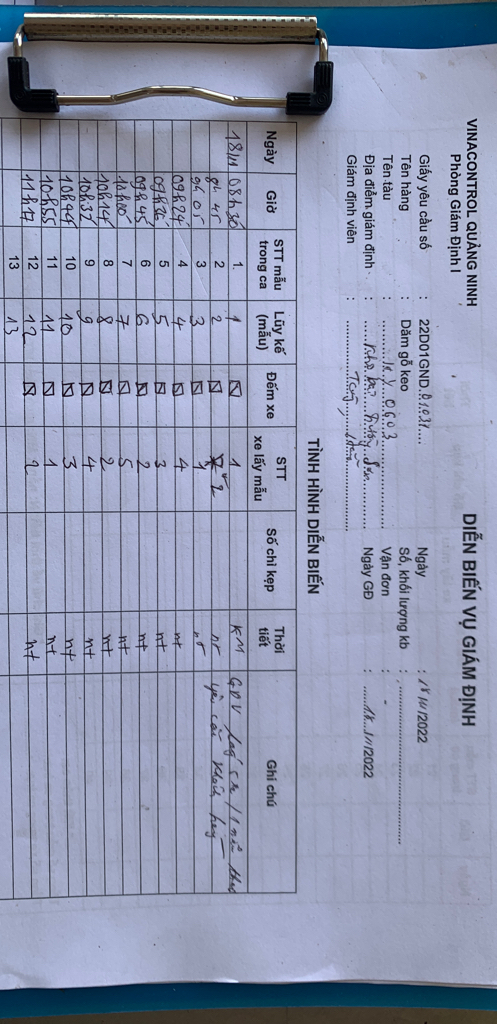 VINACONTROL QUẢNG NINH
Phòng Giám Định I
DIỄN BIẾN VỤ GIÁM ĐỊNH
Giấy yêu cầu số : 22D01GND
Ngày : 18/11/2022
Tên hàng : Dăm gỗ keo
Số, khối lượng kb :
Tên tàu :
Vận đơn : -
Địa điểm giám định :
Ngày GĐ : 18/11/2022
Giám định viên :
TÌNH HÌNH DIỄN BIẾN
Ngày Giờ STT mẫu trong ca Lũy kế (mẫu) Đếm xe STT xe lấy mẫu Số chì kẹp Thời tiết Ghi chú
18/11 08h30 1 1 1 KM GĐV
9h 45 2 2 2 nt yêu cầu khách hàng
9h 05 3 3 1 nt
09h24 4 4 4 nt
09h36 5 5 3 nt
09h45 6 6 2 nt
10h05 7 7 5 nt
10h14 8 8 2 nt
10h32 9 9 4 nt
10h44 10 10 3 nt
10h55 11 11 1 nt
11h17 12 12 2 nt
13 13